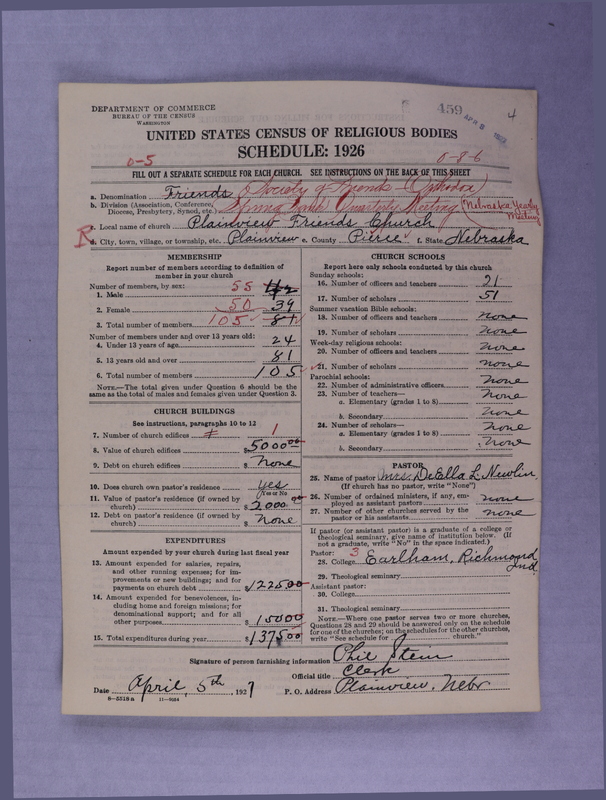 DEPARTMENT OF COMMERCE
BUREAU OF THE CENSUS
WASHINGTON
459
APR 8
4
UNITED STATES CENSUS OF RELIGIOUS BODIES
SCHEDULE: 1926
0-5
0-8-6
FILL OUT A SEPARATE SCHEDULE FOR EACH CHURCH. SEE INSTRUCTIONS ON THE BACK OF THIS SHEET
a. Denomination Friends Society of Friends (Orthodox)
b. Division (Association, Conference, Diocese, Presbytery, Synod, etc.) Spring Bank Quarterly Meeting (Nebraska Yearly Meeting)
c. Local name of church Plainview Friends Church
R
d. City, town, village, or township, etc. Plainview e. County Pierce f. State Nebraska
MEMBERSHIP
Report number of members according to definition of
member in your church
Number of members, by sex:
1. Male 55
2. Female 50 39
3. Total number of members 105 81
Number of members under and over 13 years old:
4. Under 13 years of age 24
5. 13 years old and over 81
6. Total number of members 105
NOTE.—The total given under Question 6 should be the
same as the total of males and females given under Question 3.
CHURCH BUILDINGS
See instructions, paragraphs 10 to 12
7. Number of church edifices 1
8. Value of church edifices $5000 00
9. Debt on church edifices $ None
10. Does church own pastor's residence? yes
(Yes or No)
11. Value of pastor's residence (if owned by
church) $2000 00
12. Debt on pastor's residence (if owned by
church) $ None
EXPENDITURES
Amount expended by your church during last fiscal year
13. Amount expended for salaries, repairs,
and other running expenses; for im-
provements or new buildings; and for
payments on church debt $1225 00
14. Amount expended for benevolences, in-
cluding home and foreign missions; for
denominational support; and for all
other purposes $150 00
15. Total expenditures during year $1375 00
CHURCH SCHOOLS
Report here only schools conducted by this church
Sunday schools:
16. Number of officers and teachers 21
17. Number of scholars 51
Summer vacation Bible schools:
18. Number of officers and teachers none
19. Number of scholars none
Week-day religious schools:
20. Number of officers and teachers none
21. Number of scholars none
Parochial schools:
22. Number of administrative officers none
23. Number of teachers—
a. Elementary (grades 1 to 8) none
b. Secondary none
24. Number of scholars—
a. Elementary (grades 1 to 8) none
b. Secondary none
PASTOR
25. Name of pastor Mrs. DeElla L. Newlin
(If church has no pastor, write "None")
26. Number of ordained ministers, if any, em-
ployed as assistant pastors none
27. Number of other churches served by the
pastor or his assistants none
If pastor (or assistant pastor) is a graduate of a college or
theological seminary, give name of institution below. (If
not a graduate, write "No" in the space indicated.)
Pastor: 3
28. College Earlham, Richmond
Ind.
29. Theological seminary
Assistant pastor:
30. College
31. Theological seminary
NOTE.—Where one pastor serves two or more churches,
Questions 28 and 29 should be answered only on the schedule
for one of the churches; on the schedules for the other churches,
write "See schedule for church."
Signature of person furnishing information Phil Stein
Official title Clerk
Date April, 5th, 1927
P. O. Address Plainview, Nebr
8-5518a
11-9024